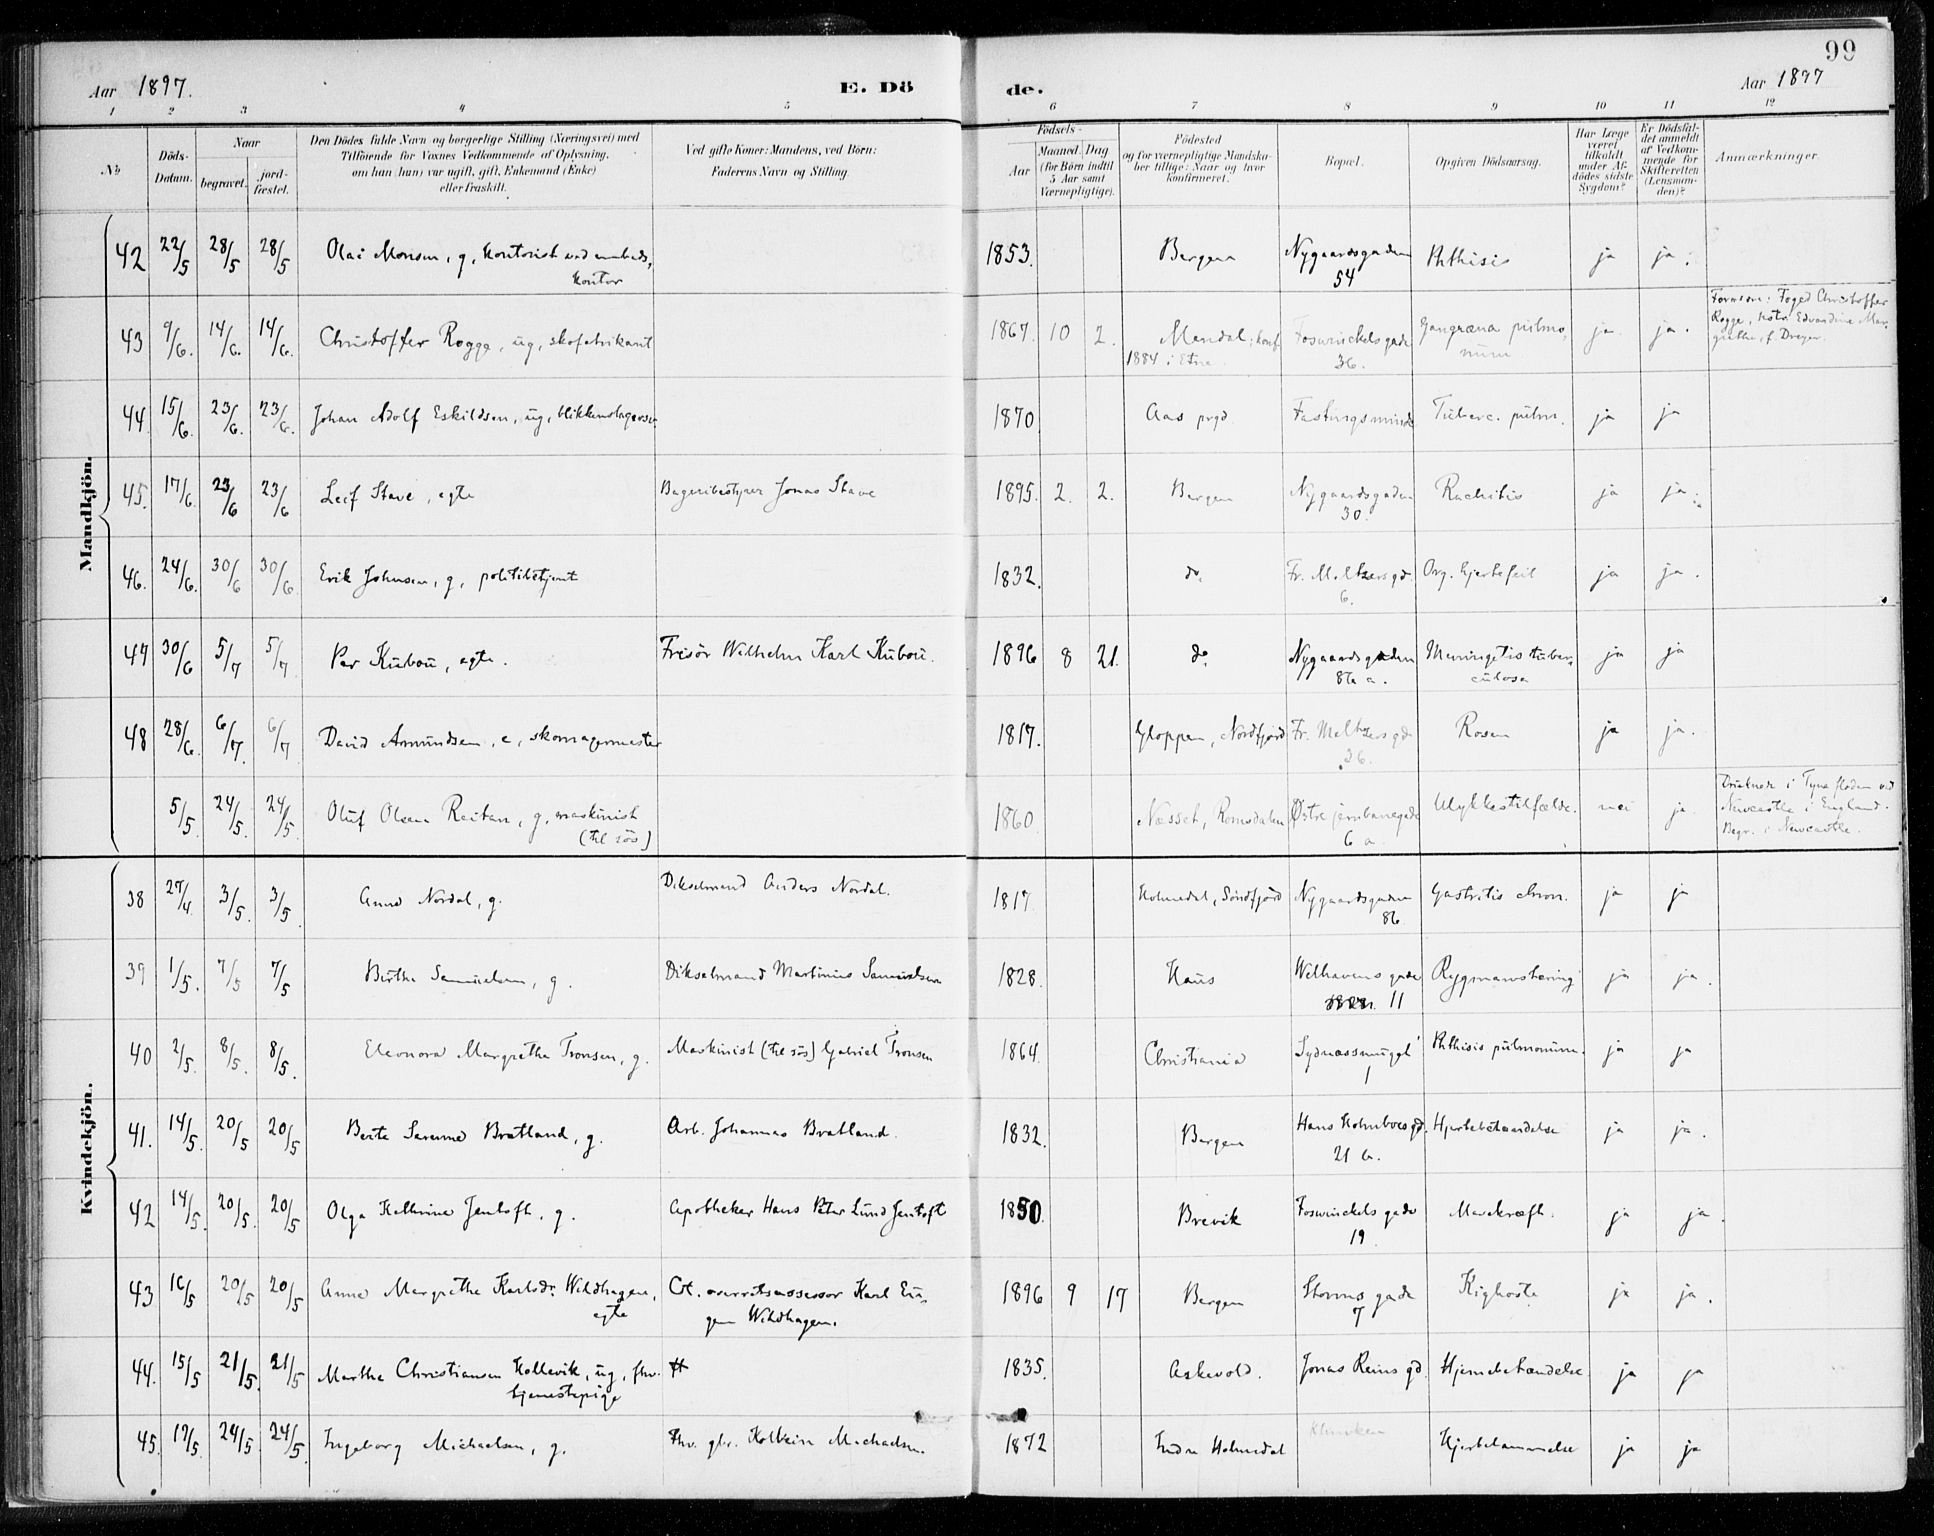 99
Aar 1897. E. Dö de. Aar 1897
1 2 3 4 5 6 7 8 9 10 11 12
№ Döds-Datum. Naar begravet. jordfæstet. Den Dödes fulde Navn og borgerlige Stilling (Næringsvei) med Tilföiende for Voxnes Vedkommende af Oplysning, om han (hun) var ugift, gift, Enkemand (Enke) eller fraskilt. Ved gifte Koner: Mandens, ved Börn: Faderens Navn og Stilling. Födsels- Aar Maaned. Dag (for Börn indtil 5 Aar samt Værnepligtige). Födested og for værnepligtige Mandskaber tillige: Naar og hvor konfirmeret. Bopæl. Opgiven Dödsaarsag. Har Læge været tilkaldt under Afdödes sidste Sygdom? Er Dödsfaldet anmeldt af Vedkommende for Skifteretten (Lensmanden)? Anmærkninger.
Mandkjön.
42 22/5 28/5 28/5 Olai Monsen, g, kontorist ved embeds, kontor 1853. Bergen Nygaardsgaden 54 Phthisis ja ja.
43 9/6. 14/6. 14/6. Christoffer Rogge, ug, skofabrikant 1867. 10 2. Mandal; konf. 1884 i Etne Foswinckelsgade 36. Gangræna pulmonum ja ja. Forældre: Foged Christoffer Rogge, Edvardine Margrethe, f. Dreyer.
44. 15/6. 23/6. 23/6. Johan Adolf Eskildsen, ug, blikkenslagersv. 1870 Aas prgd. Fastingsminde Tuberc. pulm. ja ja
45. 17/6. 23/6 23/6 Leif Stave, egte Bageribestyrer Jonas Stave 1895. 2. 2. Bergen Nygaardsgaden 30. Rachitis ja ja.
46. 24/6. 30/6 30/6. Erik Johnsen, g, politibetjent 1832. do. Fr. Meltzersgd. 6. Org. hjertefeil ja ja.
47 30/6 5/7 5/7 Per Kubou, egte. Frisör Wilhelm Karl Kubou. 1896 8 21. do. Nygaardsgaden 86 a. Meningitis tuberculosa ja ja
48 28/6. 6/7. 6/7 David Amundsen, e, skomagermester 1817. Gloppen, Nordfjord Fr. Meltzersgd. 26. Rosen ja ja.
5/5. 24/5. 24/5. Oluf Olsen Reitan, g, maskinist (til sös) 1860. Næsset, Romsdalen Östre jernbanegade 6 a Ulykkestilfælde. nei ja. Druknede i Tyne floden ved Newcastle i England. Begr. i Newcastle.
Kvindekjön.
38 27/4. 3/5. 3/5. Anna Nordal, g. Dikselmand Anders Nordal. 1817. Holmedal, Söndfjord Nygaardsgaden 86 Gastritis chron. ja ja
39 1/5. 7/5 7/5 Berthe Samuelsen, g. Dikselmand Martinius Samuelsen 1828. Haus Welhavens gade 11 Rygmarvstæring ja ja.
40 2/5. 8/5. 8/5. Eleonora Margrethe Tronsen, g. Maskinist (til sös) Gabriel Tronsen 1864. Christiania Sydnæssmuget 1 Phthisis pulmonum. ja ja
41. 14/5. 20/5 20/5 Berte Serine Bratland, g. Arb. Johannes Bratland. 1832. Bergen Hans Holmboesgd. 21 b. Hjertebetændelse ja ja.
42 14/5. 20/5. 20/5 Olga Kathrine Jentoft, g. Apotheker Hans Peter Lund Jentoft 1850. Brevik Foswinckels gade 19. Mavekræft. ja ja.
43 16/5 20/5 20/5 Anna Margrethe Karlsdr. Wildhagen, egte Cst. overretsassessor Karl Eugen Wildhagen. 1896 9 17 Bergen Storms gade 7 Kighoste ja ja.
44. 15/5 21/5. 21/5 Marthe Christiansen Hellevik, ug, fhv. tjenestepige 1835. Askevold. Jonas Reins gd. Hjernebetændelse. ja ja
45. 17/5. 24/5 24/5. Ingeborg Michaelsen, g. Fhv. gbr. Kolbein Michaelsen. 1872 Indre Holmedal Kliniken Hjertelammelse ja ja